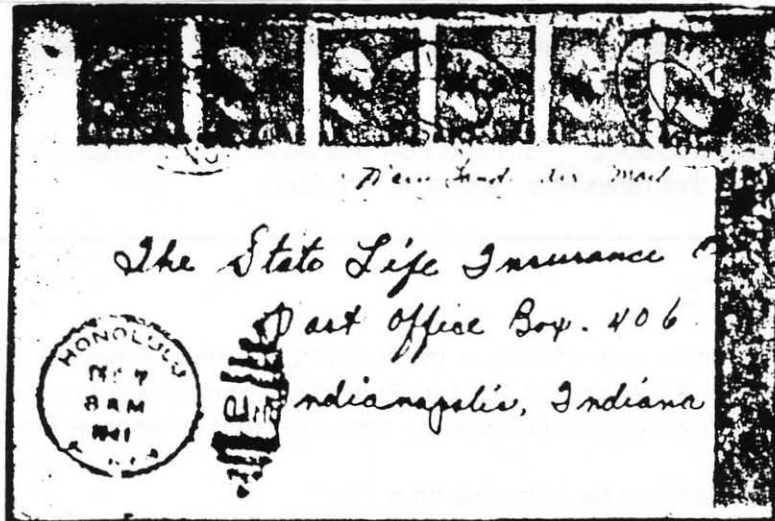 Mail
The State Life Insurance
Post Office Box. 406
Indianapolis, Indiana
HONOLULU
8 AM
1941